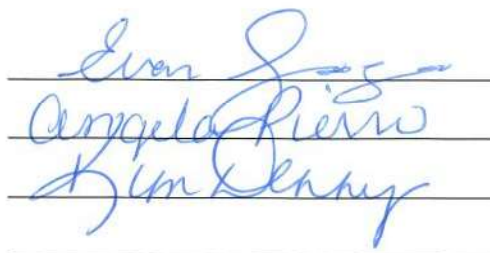 Evan
Angela Pierro
Kim Denny